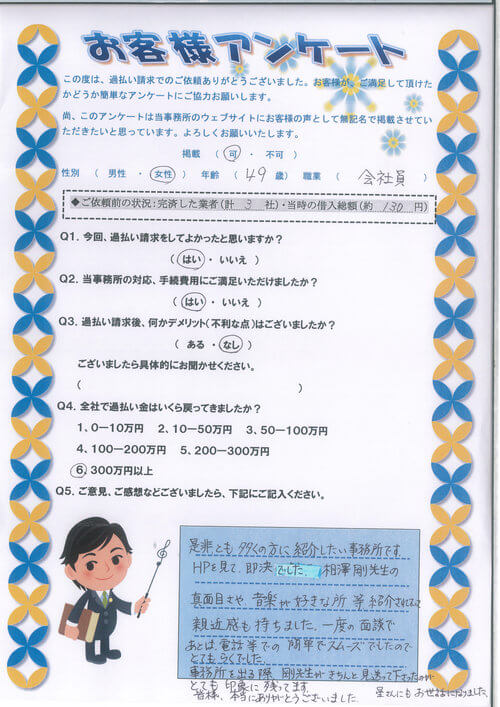 お客様アンケート
この度は、過払い請求でのご依頼ありがとうございました。お客様が、ご満足して頂けた
かどうか簡単なアンケートにご協力お願いします。
尚、このアンケートは当事務所のウェブサイトにお客様の声として無記名で掲載させてい
ただきたいと思っています。よろしくお願いいたします。
掲載 （ 可 ・ 不可 ）
性別 （ 男性 ・ 女性 ） 年齢 （ 49 歳） 職業 （ 会社員 ）
◆ご依頼前の状況：完済した業者（計 3 社）・当時の借入総額（約 130 円）
Q1. 今回、過払い請求をしてよかったと思いますか？
（ はい ・ いいえ ）
Q2. 当事務所の対応、手続費用にご満足いただけましたか？
（ はい ・ いいえ ）
Q3. 過払い請求後、何かデメリット（不利な点）はございましたか？
（ ある ・ なし ）
ございましたら具体的にお聞かせください。
（ ）
Q4. 全社で過払い金はいくら戻ってきましたか？
1、0－10万円 2、10－50万円 3、50－100万円
4、100－200万円 5、200－300万円
6、300万円以上
Q5. ご意見、ご感想などございましたら、下記にご記入ください。
是非とも多くの方に紹介したい事務所です
HPを見て、即決でした 相澤剛先生の
真面目さや 音楽が好きな所 等 紹介されてて
親近感も持ちました。一度の面談で
あとは電話等での 簡単でスムーズでしたので
とてもらくでした。
事務所を出る際 剛先生がきちんと見送って下さったのが
とても印象に残ってます
皆様、本当にありがとうございました。
星さんにもお世話になりました。